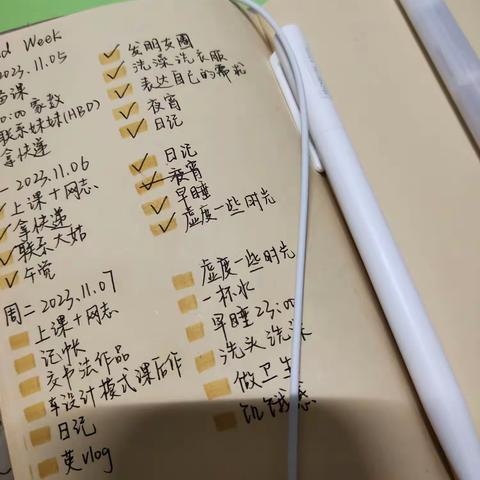 d Week
2023.11.05
备课
0:00 家教
联系妹妹(HBD)
拿快递
发朋友圈
洗澡洗衣服
表达自己的需求
夜宵
日记
一 2023.11.06
上课+网志
拿快递
联系大姑
午觉
日记
夜宵
早睡
虚度一些时光
周二 2023.11.07
上课+网志
记帐
交书法作品
车设计模式课后作
日记
英vlog
虚度一些时光
一杯水
早睡 23:00
洗头洗澡
做卫生
饥饿感